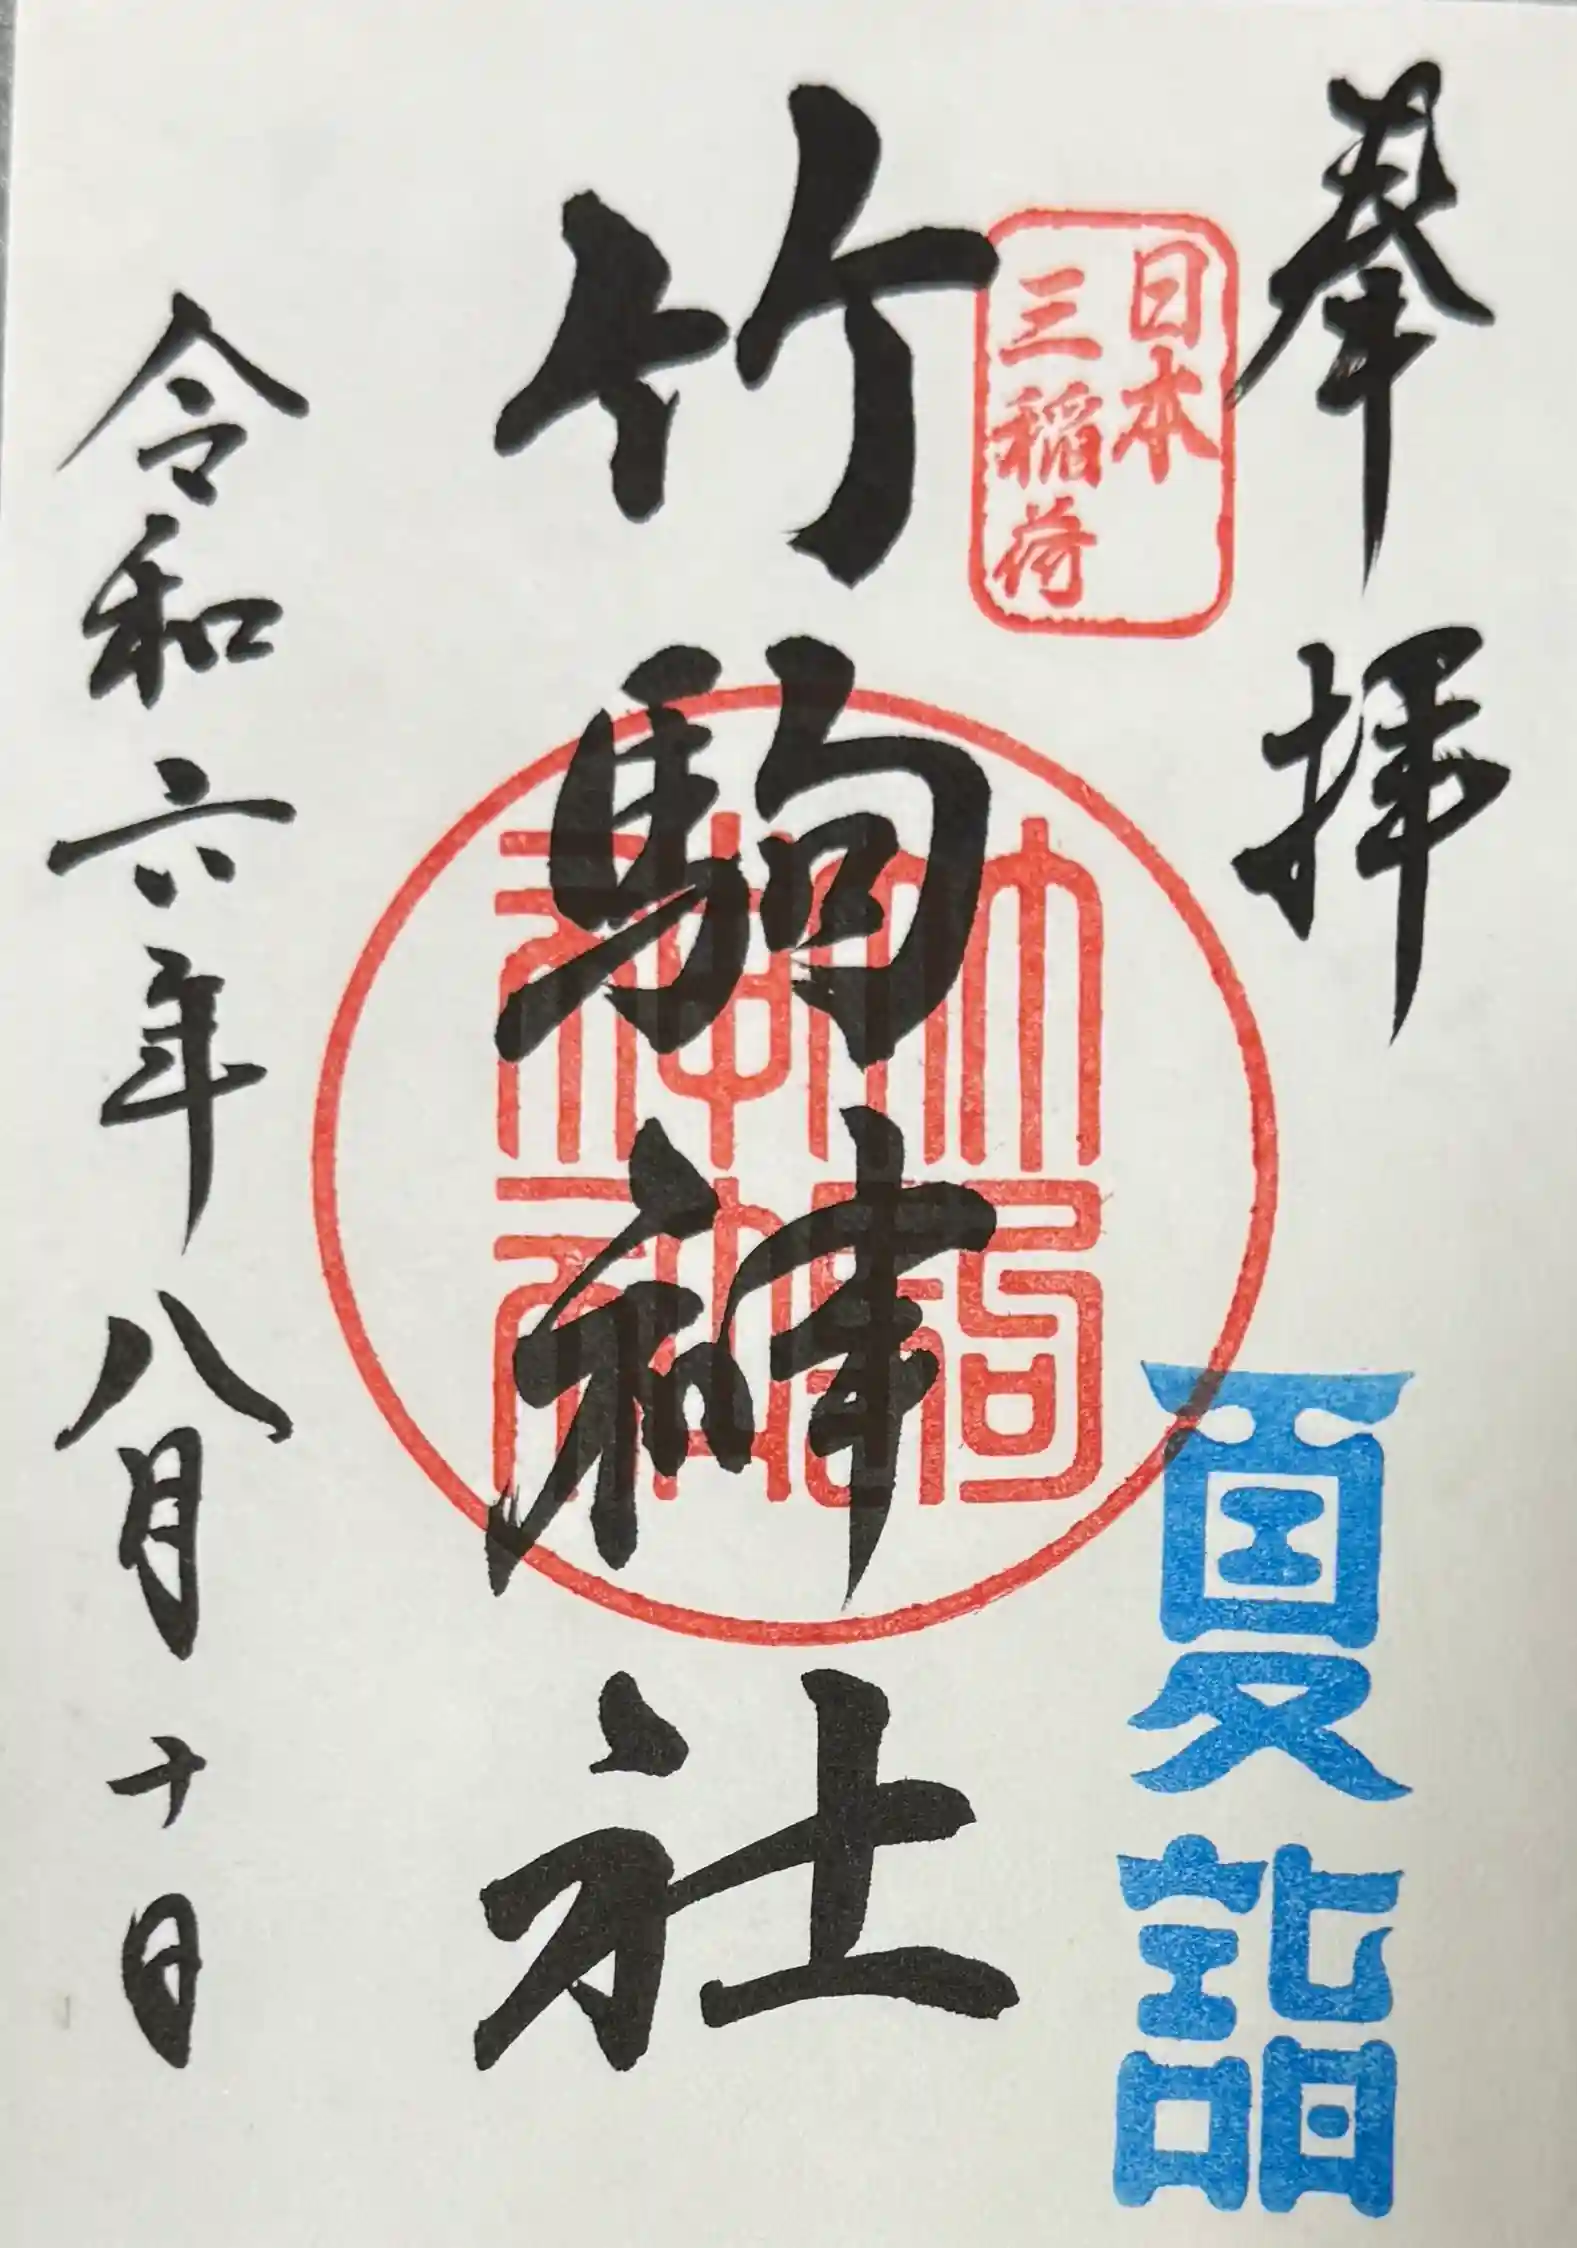 奉拝
日本
三稲荷
竹駒神社
竹駒
神社
夏詣
令和六年八月十日